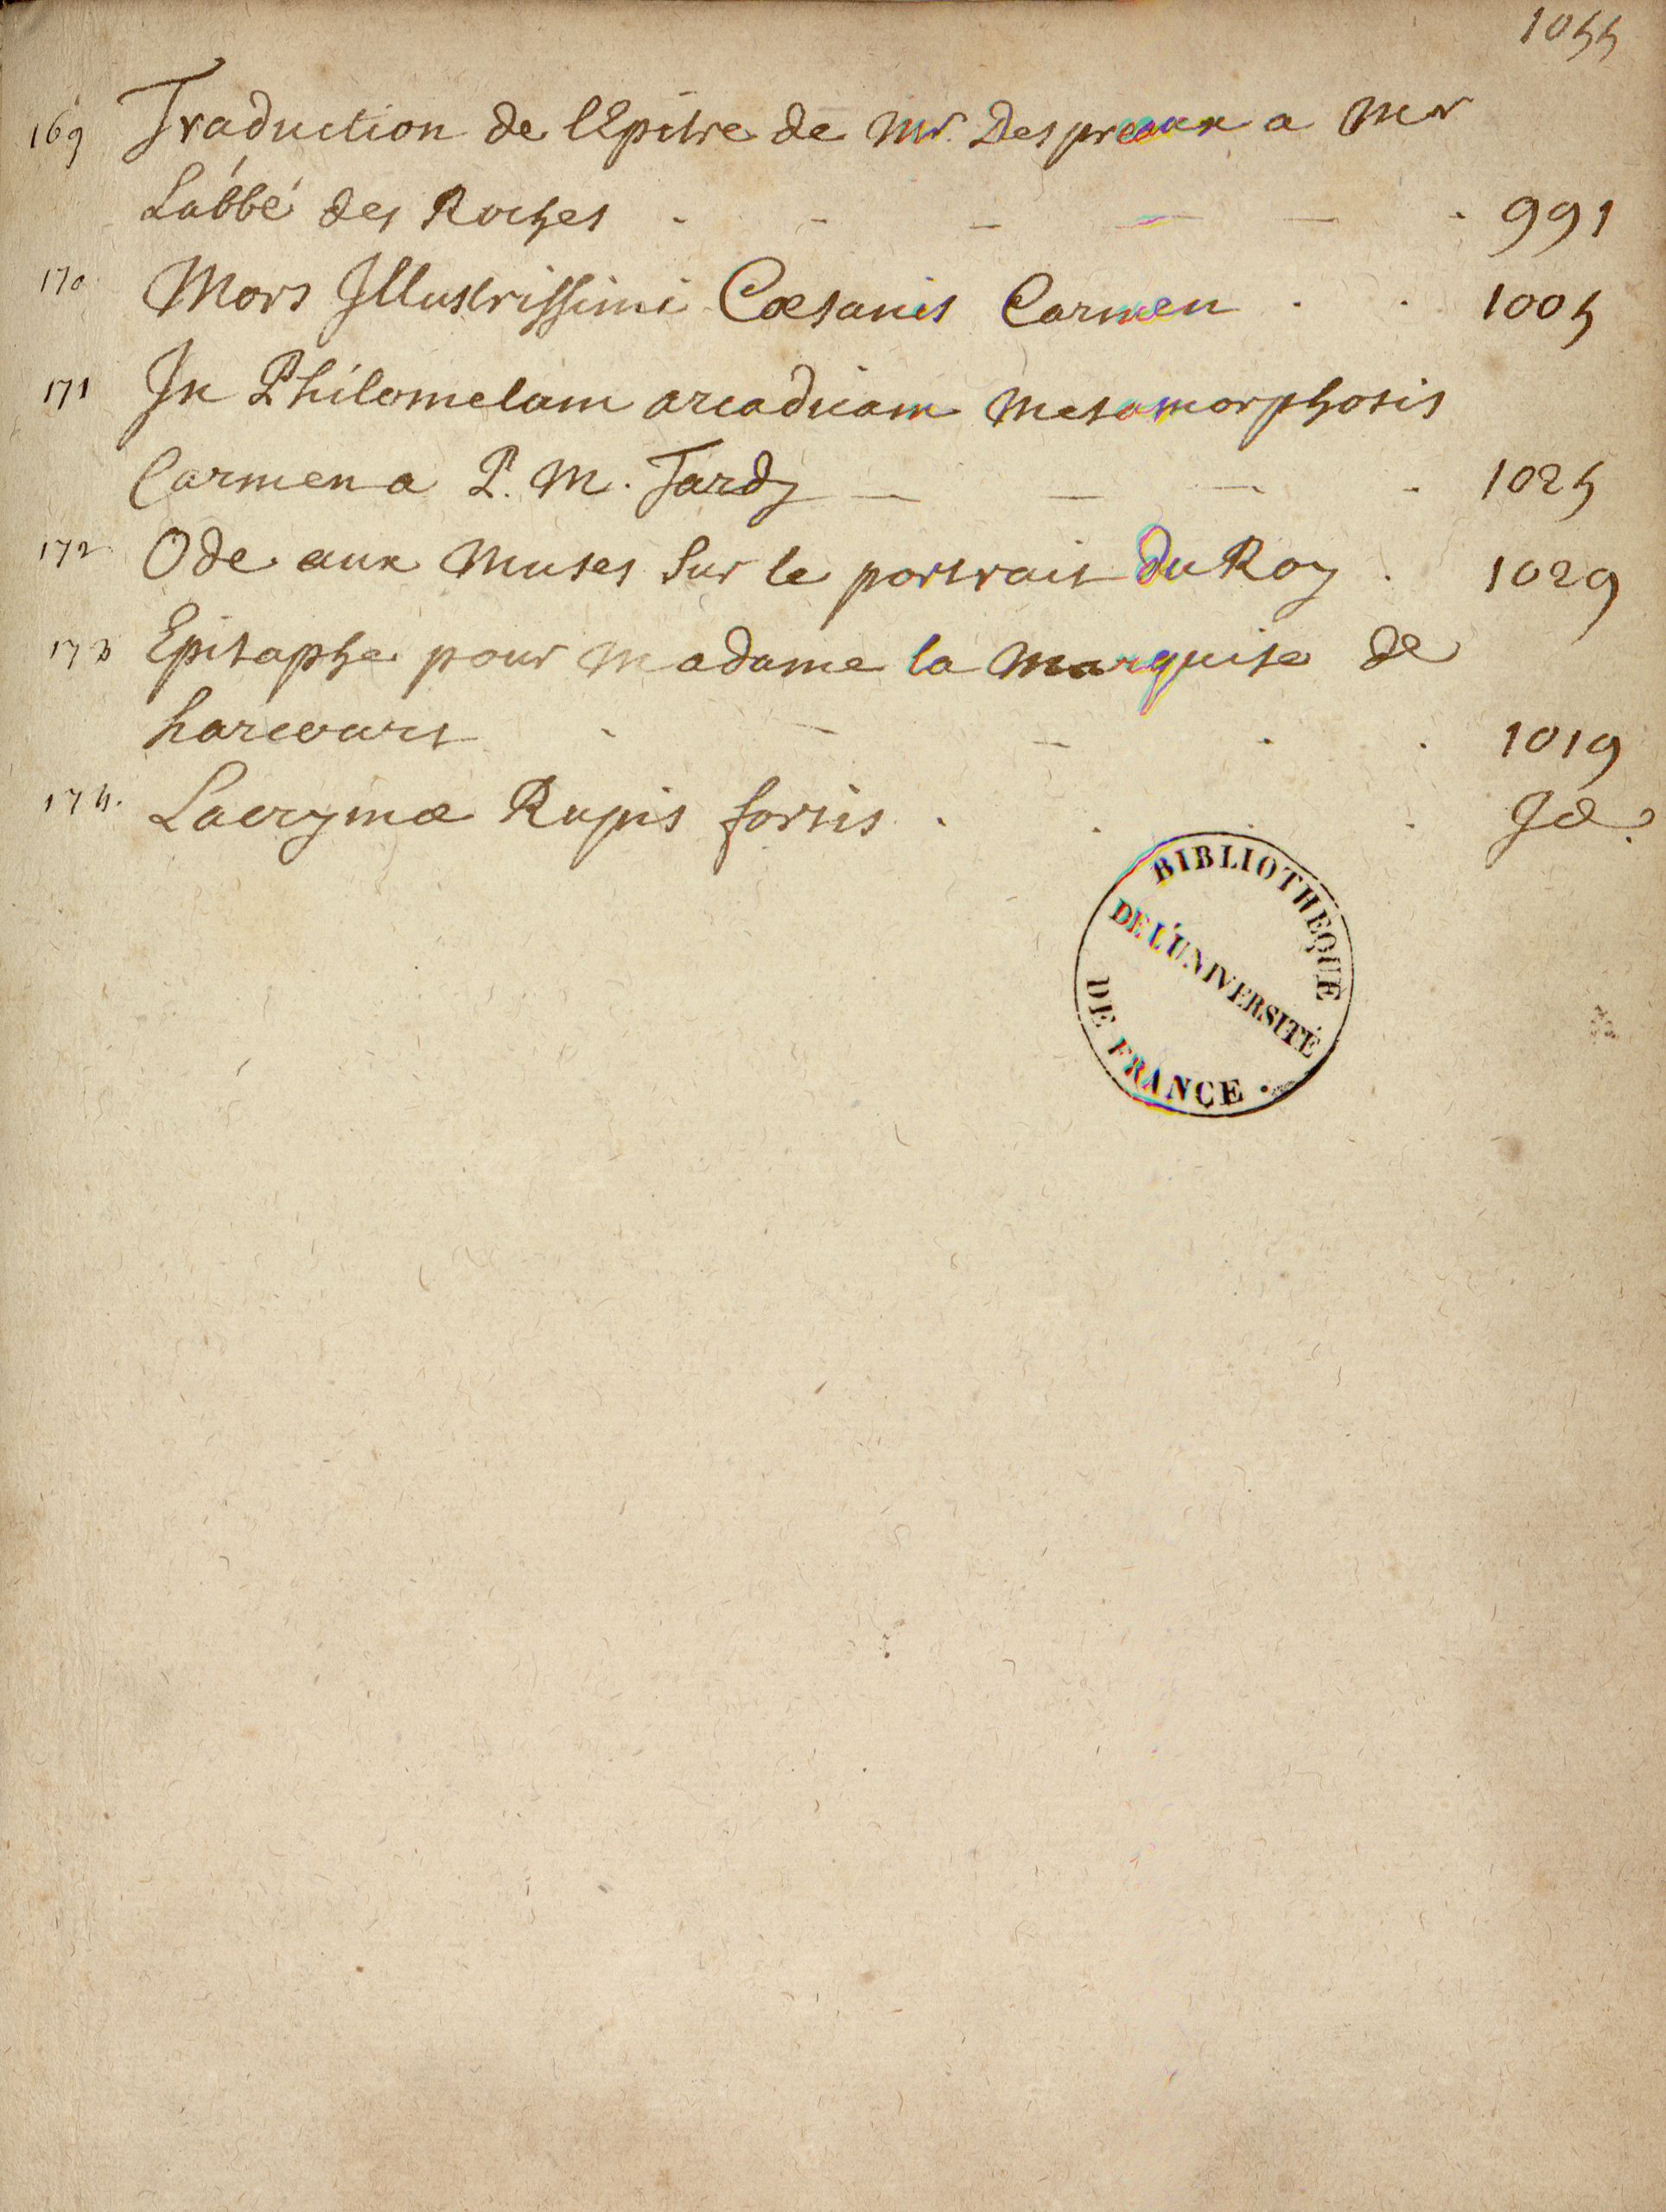 1055
169 Traduction de lEpitre de Mr. Despreaux a Mr
Labbé des Roches . - - - - . 991
170 Mors Illustrissimi Cæsanis Carmen . . 1005
171 In Philomelam arcadicam metamorphosis
Carmen a P. M. Tardy - - - . 1025
172 Ode aux Muses Sur le portrait du Roy . 1029
173 Epitaphe pour Madame la Marquise de
harcourt . - - . . 1019
174. Lacrymæ Rupis fortis . . . . Id.
BIBLIOTHÈQUE
DE L'UNIVERSITÉ
DE FRANCE .